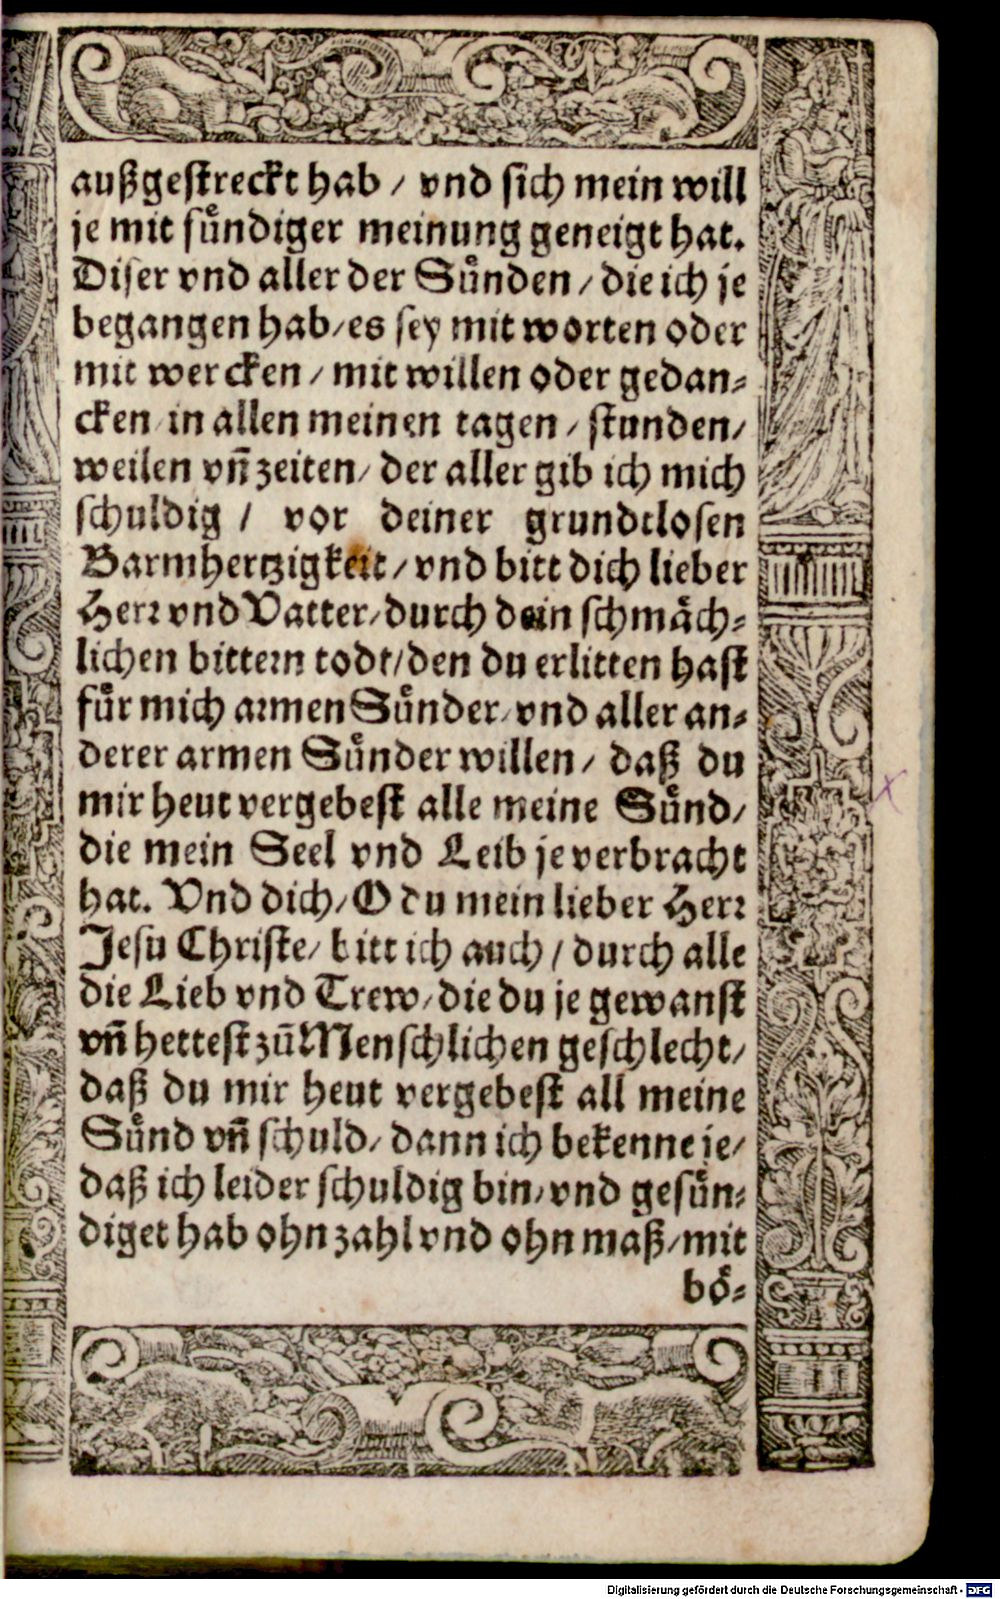 außgestreckt hab / vnd sich mein will
je mit sůndiger meinung geneigt hat.
Diser vnd aller der Sůnden / die ich je
begangen hab / es sey mit worten oder
mit wercken / mit willen oder gedan⸗
cken in allen meinen tagen / stunden /
weilen vñ zeiten / der aller gib ich mich
schuldig / vor deiner grundtlosen
Barmhertzigkeit / vnd bitt dich lieber
Herr vnd Vatter / durch dein schmåch⸗
lichen bittern todt / den du erlitten hast
fůr mich armen Sůnder / vnd aller an⸗
derer armen Sůnder willen / daß du
mir heut vergebest alle meine Sůnd /
die mein Seel vnd Leib je verbracht
hat. Vnd dich / O du mein lieber Herr
Jesu Christe / bitt ich auch / durch alle
die Lieb vnd Trew / die du je gewanst
vñ hettest zů Menschlichen geschlecht /
daß du mir heut vergebest all meine
Sůnd vñ schuld / dann ich bekenne je /
daß ich leider schuldig bin / vnd gesůn⸗
diget hab ohn zahl vnd ohn maß / mit
bö⸗
Digitalisierung gefördert durch die Deutsche Forschungsgemeinschaft - DFG